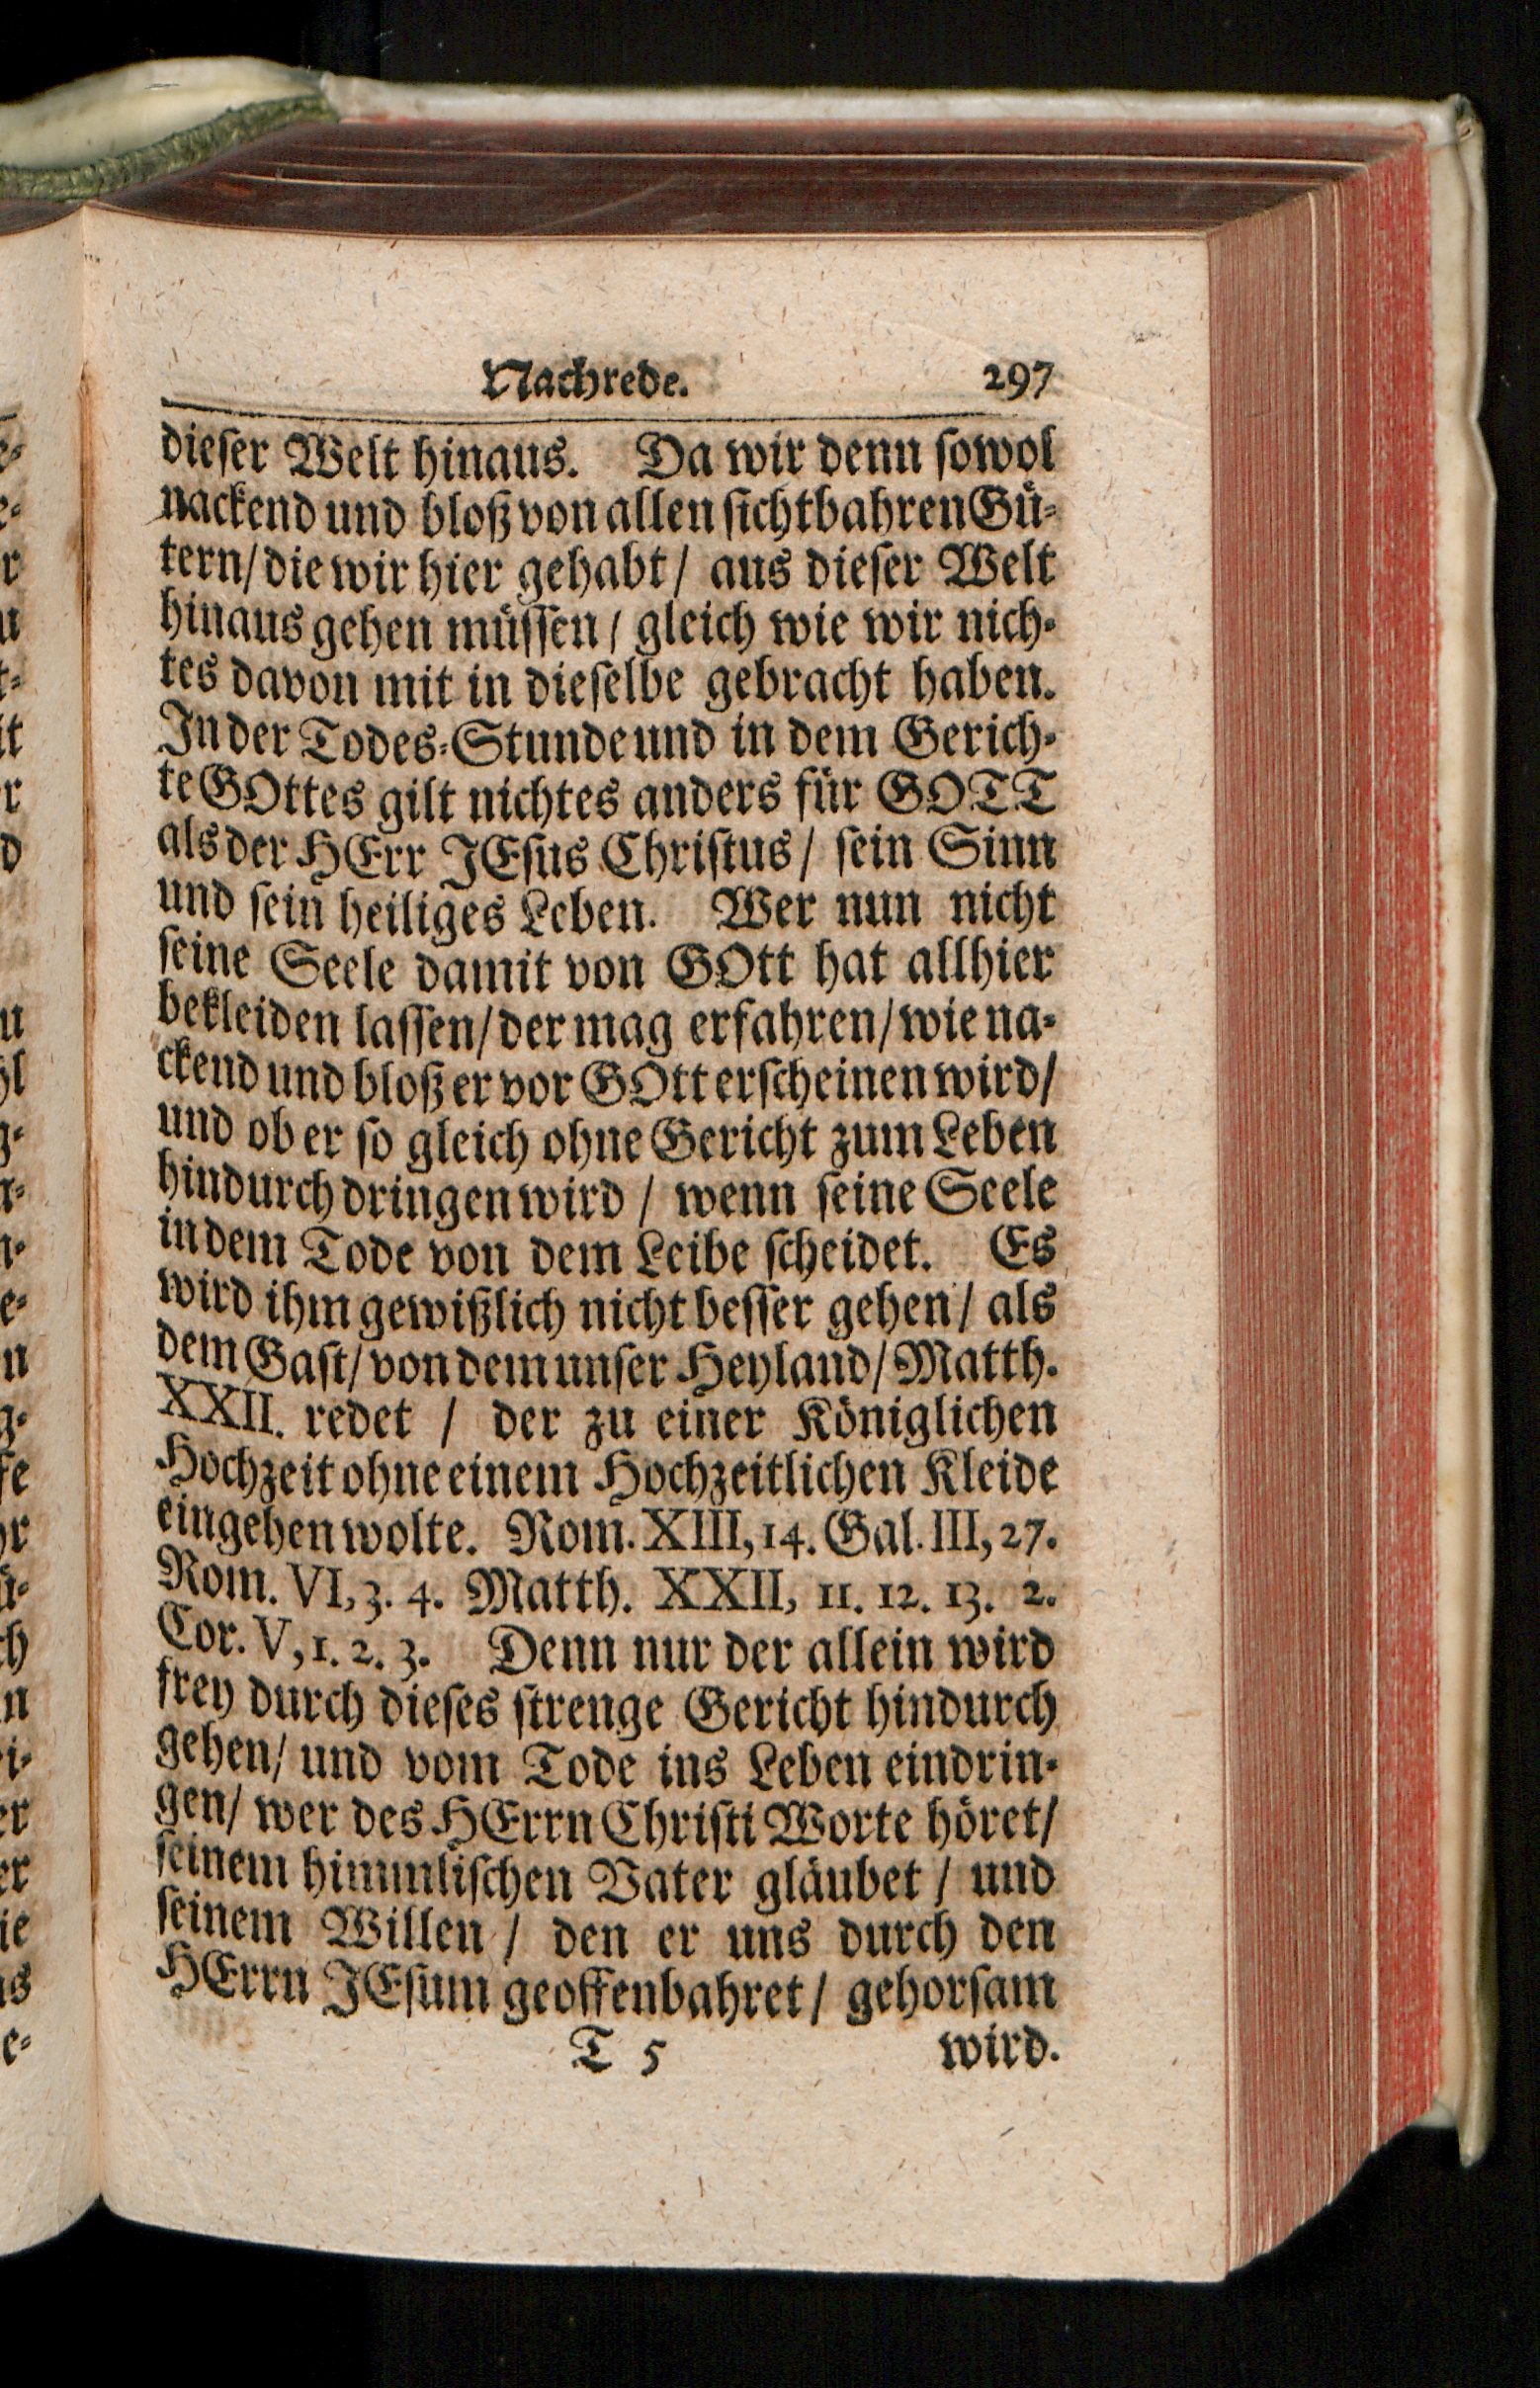 Nachrede. 297
dieſer Welt hinaus. Da wir denn ſowol
nackend und bloß von allen ſichtbahren Gü-
tern/ die wir hier gehabt/ aus dieſer Welt
hinaus gehen müſſen/ gleich wie wir nich-
tes davon mit in dieſelbe gebracht haben.
In der Todes-Stunde und in dem Gerich-
te GOttes gilt nichtes anders für GOTT
als der HErr JEſus Chriſtus/ ſein Sinn
und ſein heiliges Leben. Wer nun nicht
ſeine Seele damit von GOtt hat allhier
bekleiden laſſen/ der mag erfahren/ wie na-
ckend und bloß er vor GOtt erſcheinen wird/
und ob er ſo gleich ohne Gericht zum Leben
hindurch dringen wird/ wenn ſeine Seele
in dem Tode von dem Leibe ſcheidet. Es
wird ihm gewißlich nicht beſſer gehen/ als
dem Gaſt/ von dem unſer Heyland/ Matth.
XXII. redet / der zu einer Königlichen
Hochzeit ohne einem Hochzeitlichen Kleide
eingehen wolte. Rom. XIII, 14. Gal. III, 27.
Rom. VI, 3. 4. Matth. XXII, 11. 12. 13. 2.
Cor. V, 1. 2. 3. Denn nur der allein wird
frey durch dieſes ſtrenge Gericht hindurch
gehen/ und vom Tode ins Leben eindrin-
gen/ wer des HErrn Chriſti Worte höret/
ſeinem himmliſchen Vater gläubet/ und
ſeinem Willen/ den er uns durch den
HErrn JEſum geoffenbahret/ gehorſam
T 5 wird.